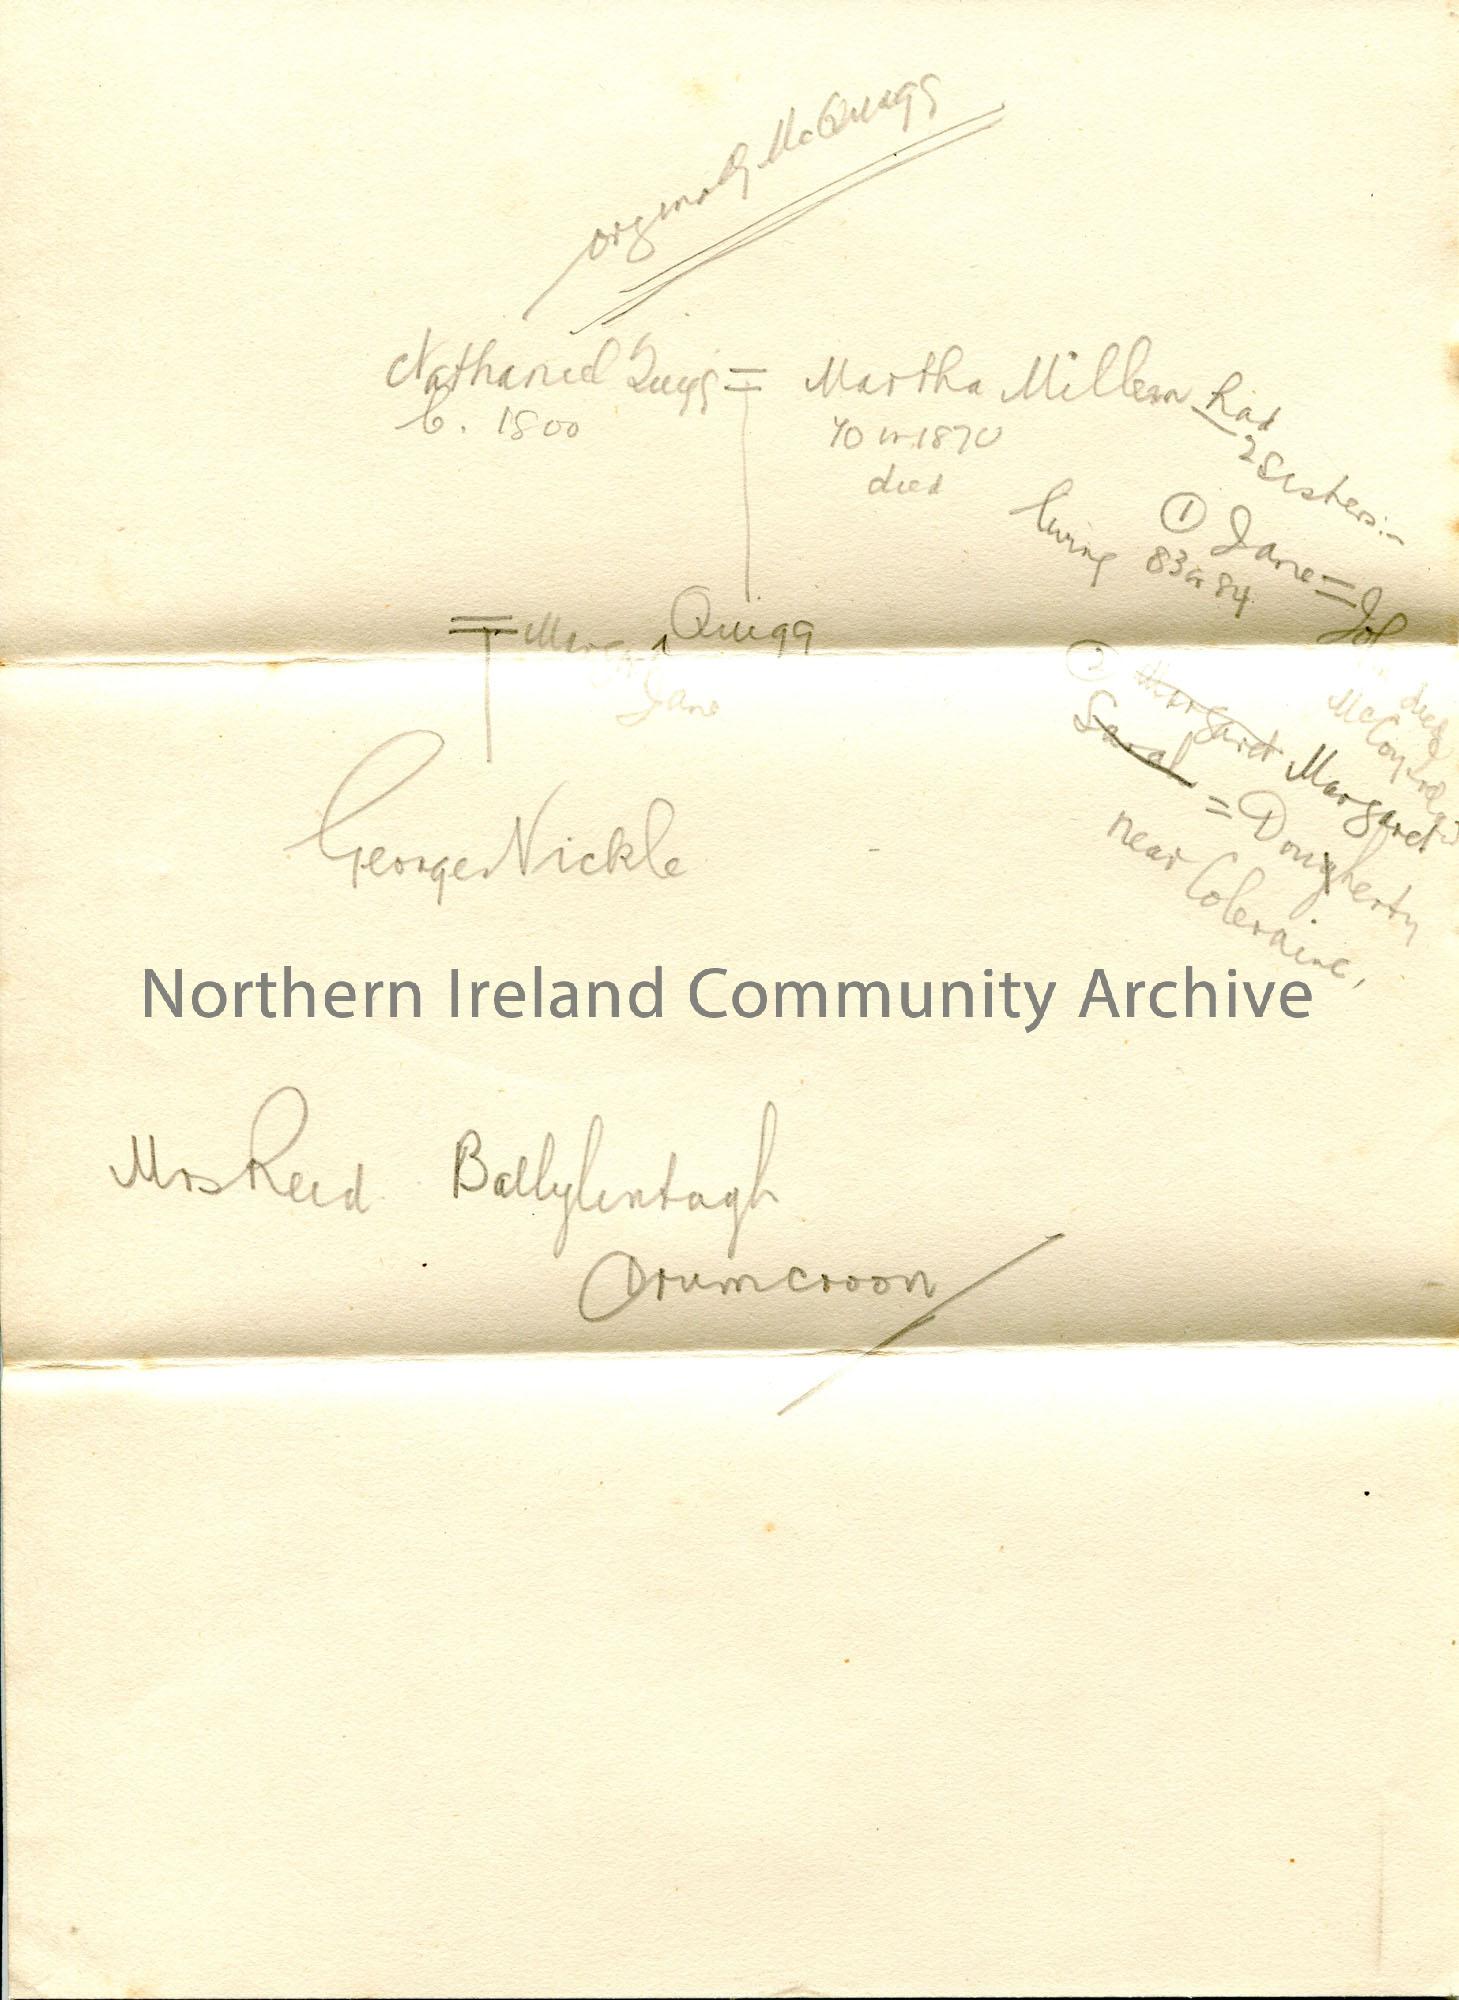 originally McQuigg
Nathaniel Quigg = Martha Millen had
b. 1800
70 in 1870
died
2 sisters:-
living
① Jane =
83 or 84
= Margaret Quigg
Jane
② Margaret Margaret
Sarah = Dougherty
near Coleraine,
died
McCoy
George Nickle
Northern Ireland Community Archive
Mrs Reid Ballylintagh
Drumcroon